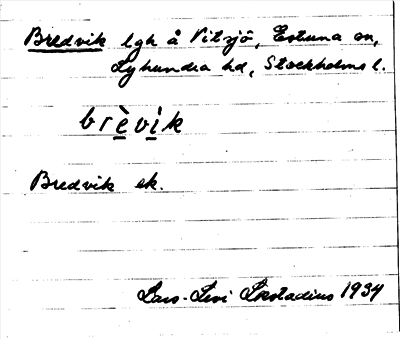 Bredvik lgh å Vitsjö, Estuna sn,
Lyhundra hd, Stockholms l.
brèvik
Bredvik ek.
Lars-Levi Læstadius 1934